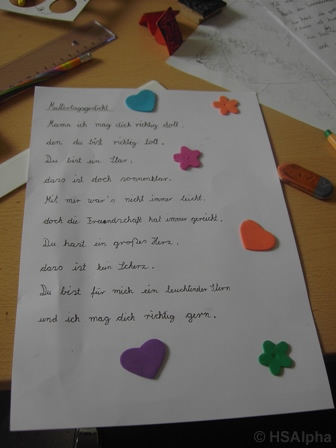 Muttertagsgedicht
Mama ich mag dich richtig doll,
den du bist richtig toll.
Du bist ein Star,
dass ist doch sonnenklar.
Mit mir war's nicht immer leicht,
doch die Freundschaft hat immer gereicht.
Du hast ein großes Herz,
dass ist kein Scherz.
Du bist für mich ein leuchtender Stern
und ich mag dich richtig gern.
© HSAlpha